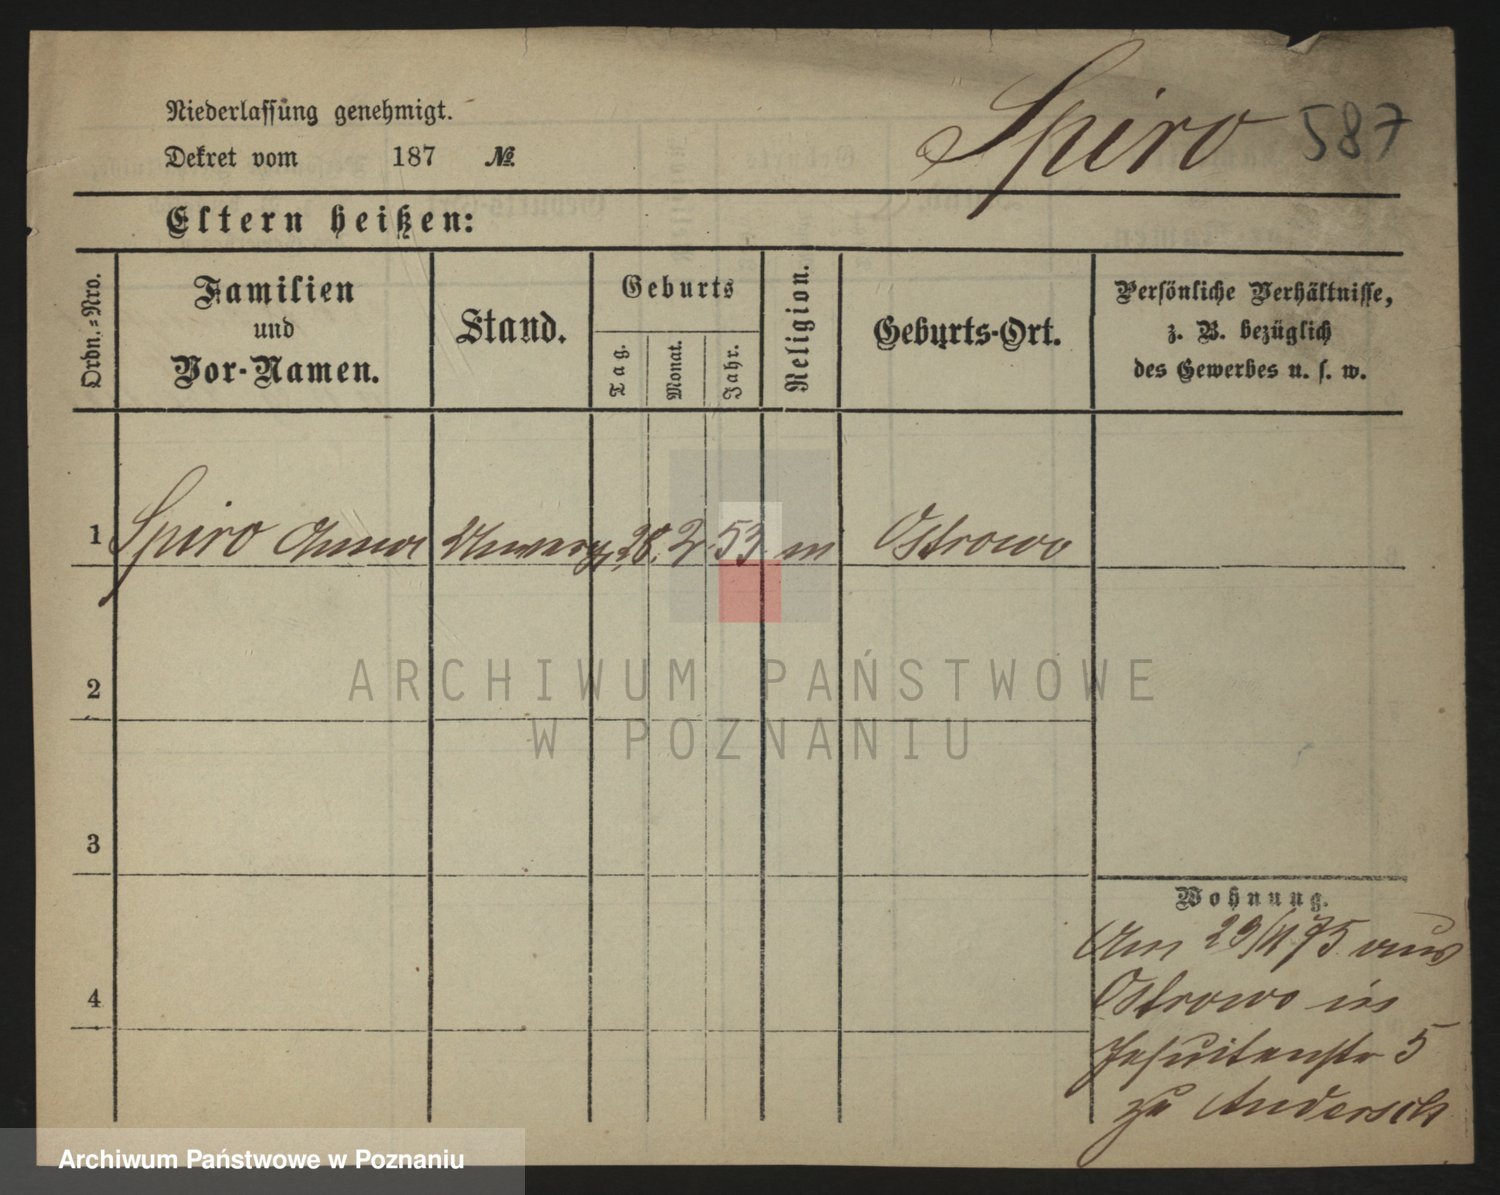 Niederlassung genehmigt.
Spiro 587
Dekret vom 187 №
Eltern heißen:
Ordn.-Nro.
Familien
und
Vor-Namen.
Stand.
Geburts
Tag.
Monat.
Jahr.
Religion.
Geburts-Ort.
Persönliche Verhältnisse,
z. B. bezüglich
des Gewerbes u. s. w.
1 Spiro Anna 28. 2. 53. m Ostrowo
2
ARCHIWUM PAŃSTWOWE
W POZNANIU
3
Wohnung.
Am 29/11 75 aus
4
Ostrowo in
Jesuitenstr 5
zu Andersch
Archiwum Państwowe w Poznaniu